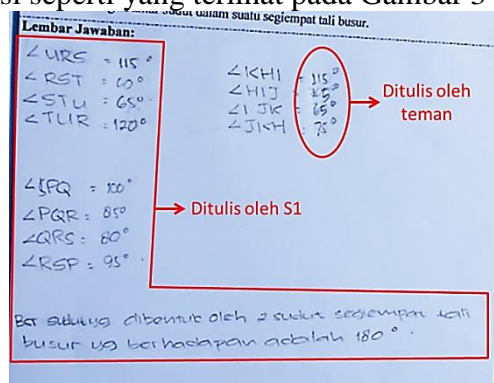 si seperti yang terlihat pada Gambar 3
sudut dalam suatu segiempat tali busur.
Lembar Jawaban:
∠URS = 115°
∠RST = 60°
∠STU = 65°
∠TUR = 120°
∠KHI = 115°
∠HIJ = 105°
∠IJK = 65°
∠JKH = 75°
Ditulis oleh
teman
∠SPQ = 100°
∠PQR = 85°
∠QRS = 80°
∠RSP = 95°
Ditulis oleh S1
Bsr sudut yg dibentuk oleh 2 sudut segiempat tali
busur yg berhadapan adalah 180°.